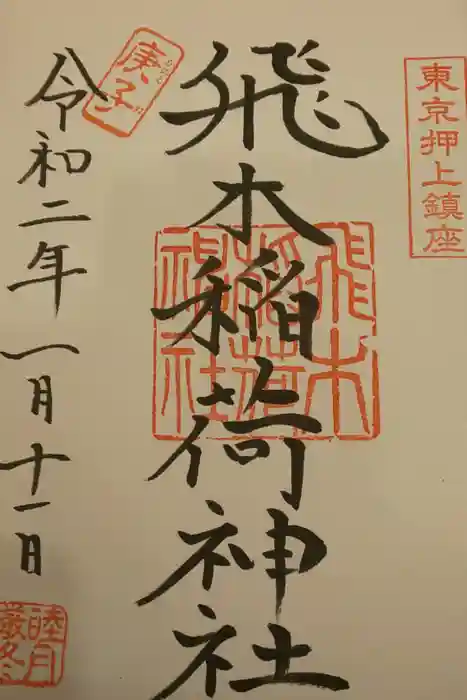 東京押上鎮座
飛木稲荷神社
飛木
稲荷
神社
庚子
令和二年一月十一日
睦月
厳冬